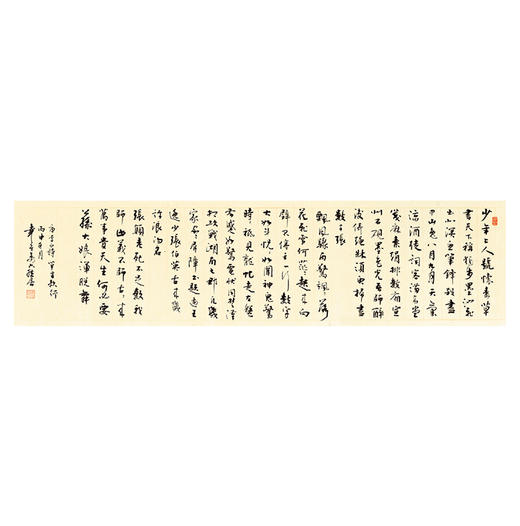 少年上人號懷素草
書天下稱獨步墨池飛
出北溟魚筆鋒殺盡
中山兔八月九月天氣
涼酒徒詞客滿高堂
箋麻素絹排數廂宣
州石硯墨色光吾師醉
後倚繩床須臾掃盡
數千張
飄風驟雨驚颯颯落
花飛雪何茫茫起來向
壁不停手一行數字
大如斗怳怳如聞神鬼驚
時時只見龍蛇走左盤
右蹙如驚電狀同楚漢
相攻戰湖南七郡凡幾
家家家屏障書題遍王
逸少張伯英古來幾
許浪得名
張顛老死不足數我
師此義不師古古來
萬事貴天生何必要公
孫大娘渾脫舞
李白詩草書歌行
丙申